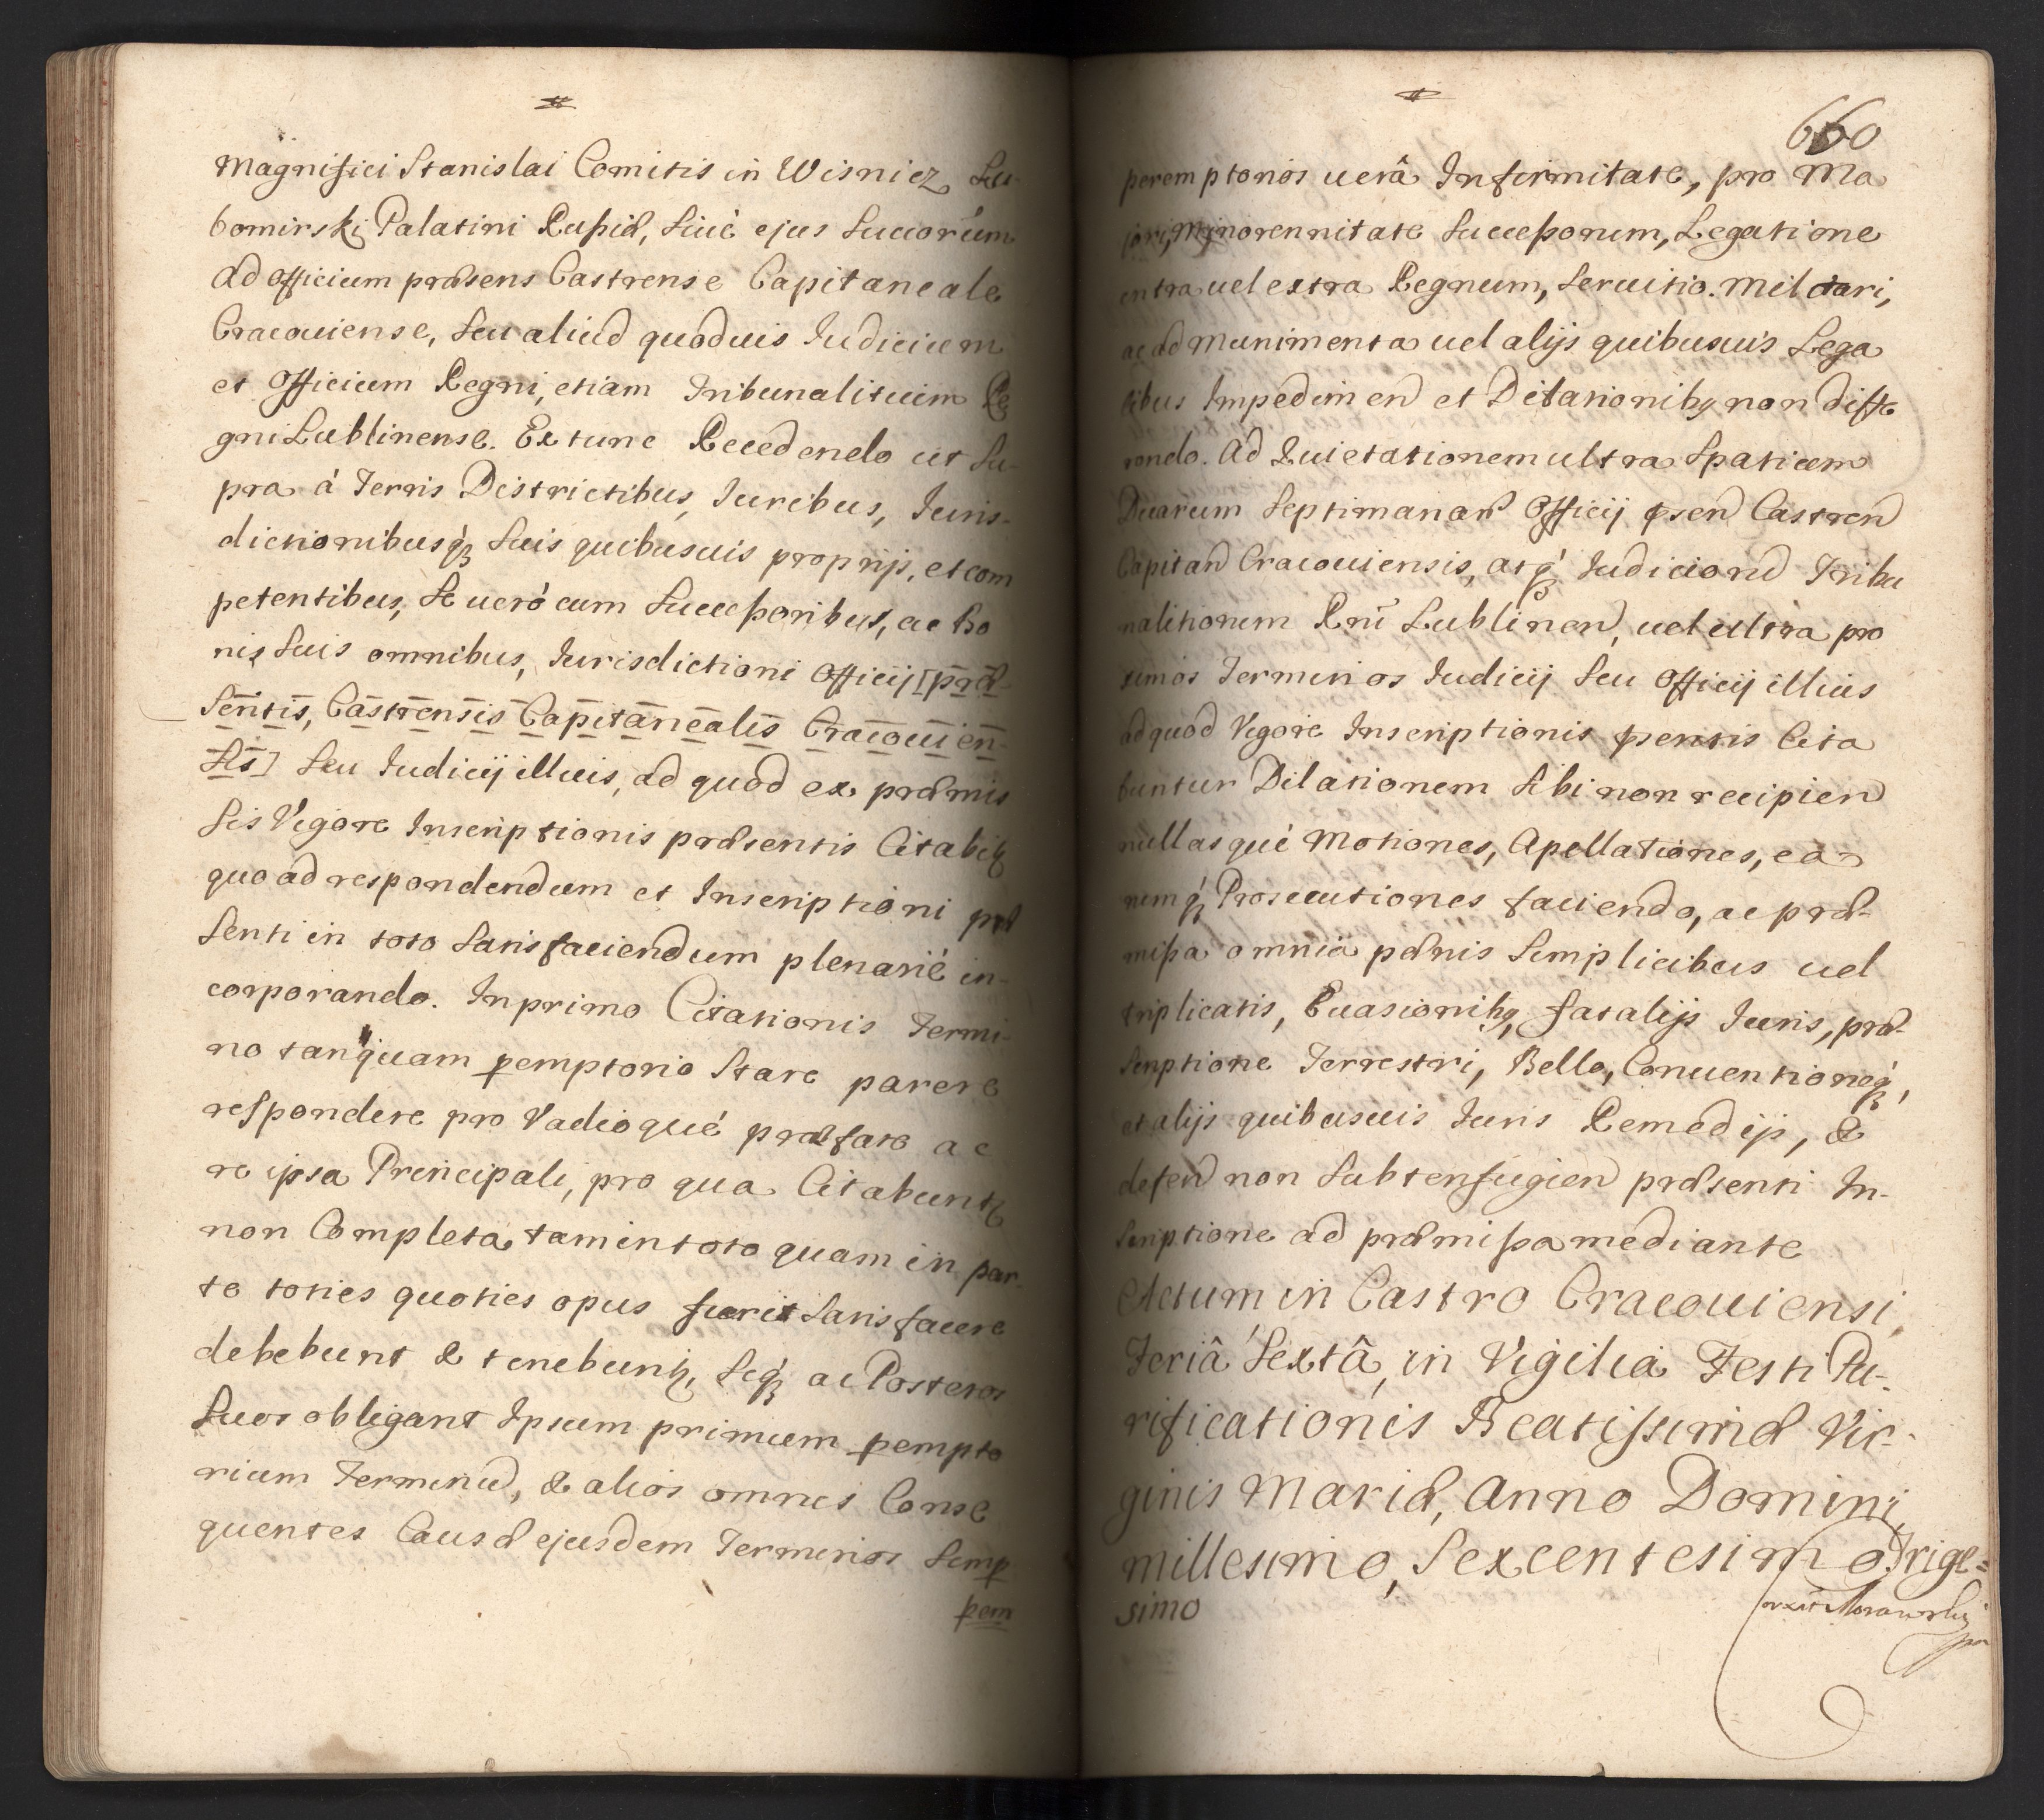 Magnifici Stanislai Comitis in Wisnicz Lu-
bomirski Palatini Russiæ, siuè ejus succorum
ad officium præsens Castrense Capitaneale
Cracouiense, seu aliud quoduis Iudicium
et Officium Regni, etiam Tribunalitium Re
gni Lublinense. Ex tunc Recedendo ut su-
pra á Terris Districtibus, Iuribus, Iuris-
dictionibusq́ꝫ suis quibusuis proprijs, et com
petentibus, se ueró cum successoribus, ac Bo
nis suis omnibus, Iurisdictioni Officij [præ-
sentis, Castrensis Capitanealis Cracouien-
sis] seu Iudicij illius, ad quod ex præmis
sis Vigore Inscriptionis præsentis Citabitꝫ
quo ad respondendum et Inscriptioni præ
senti in toto satisfaciendum plenarié in-
corporando. In primo Citationis Termi-
no tanquam ꝑemptorio stare parere
respondere pro Vadioqué præfato ac
re ipsa Principali, pro qua Citabuntꝫ
non Completa tam in toto quam in par-
te toties quoties opus fuerit satisfacere
debebunt & tenebuntꝫ, seq́ꝫ ac Posteros
suos obligant Ipsum primum ꝑempto
rium Terminū, & alios omnes Conse
quentes Causæ ejusdem Terminos simꝑ
ꝑem
660
peremptorios uerâ Infirmitate, pro Ma
jori, Minorennitate successorum, Legatione
intra uel extra Regnum, seruitio Militari,
ac ad Munimenta uel alijs quibusuis Lega
libus Impedimen et Dilationibꝫ non diffe
rendo. Ad Quietationem ultra spatium
Duarum septimanar Officij ꝓsen Castren
Capitan Cracouiensis, atq́ꝫ Iudicior Tribu
nalitiorum Rni Lublinen, uel ultra pro
ximos Terminos Iudicij seu Officij illius
ad quod Vigore Inscriptionis ꝓsentis Cita
buntur Dilationem sibi non recipien
nullasqué Motiones, Apellationes, ea-
rumq́ꝫ Prosecutiones faciendo, ac præ-
missa omnia pænis simplicibus uel
triplicatis, Euasionibꝫ, fatalijs Iuris, præ-
scriptione Terrestri, Bello, Conuentioneq́ꝫ,
et alijs quibusuis Iuris Remedijs, &
defen non subterfugien præsenti In-
scriptione ad præmissa mediante
Actum in Castro Cracouiensi,
Feriâ Sextâ, in Vigilia Festi Pu-
rificationis Beatissimæ Vir-
ginis Mariæ, Anno Domini,
millesimo, Sexcentesimo Trige=
simo